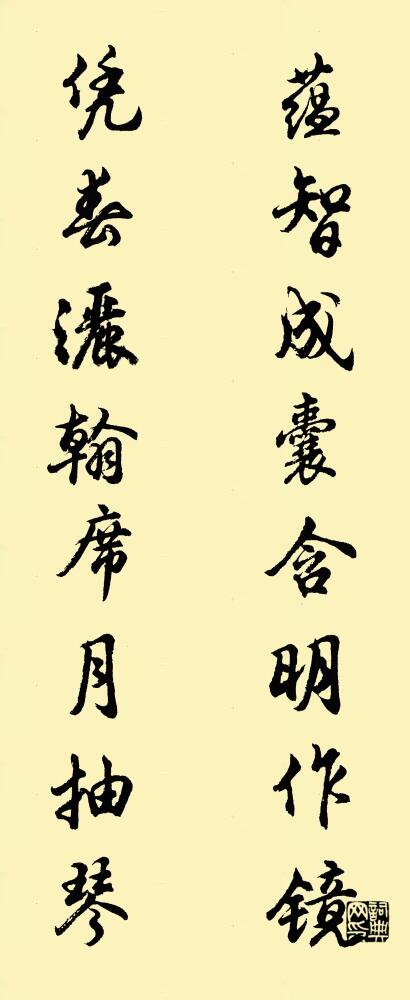 蕴智成囊含明作镜
凭春灑翰席月抽琴
詞典网